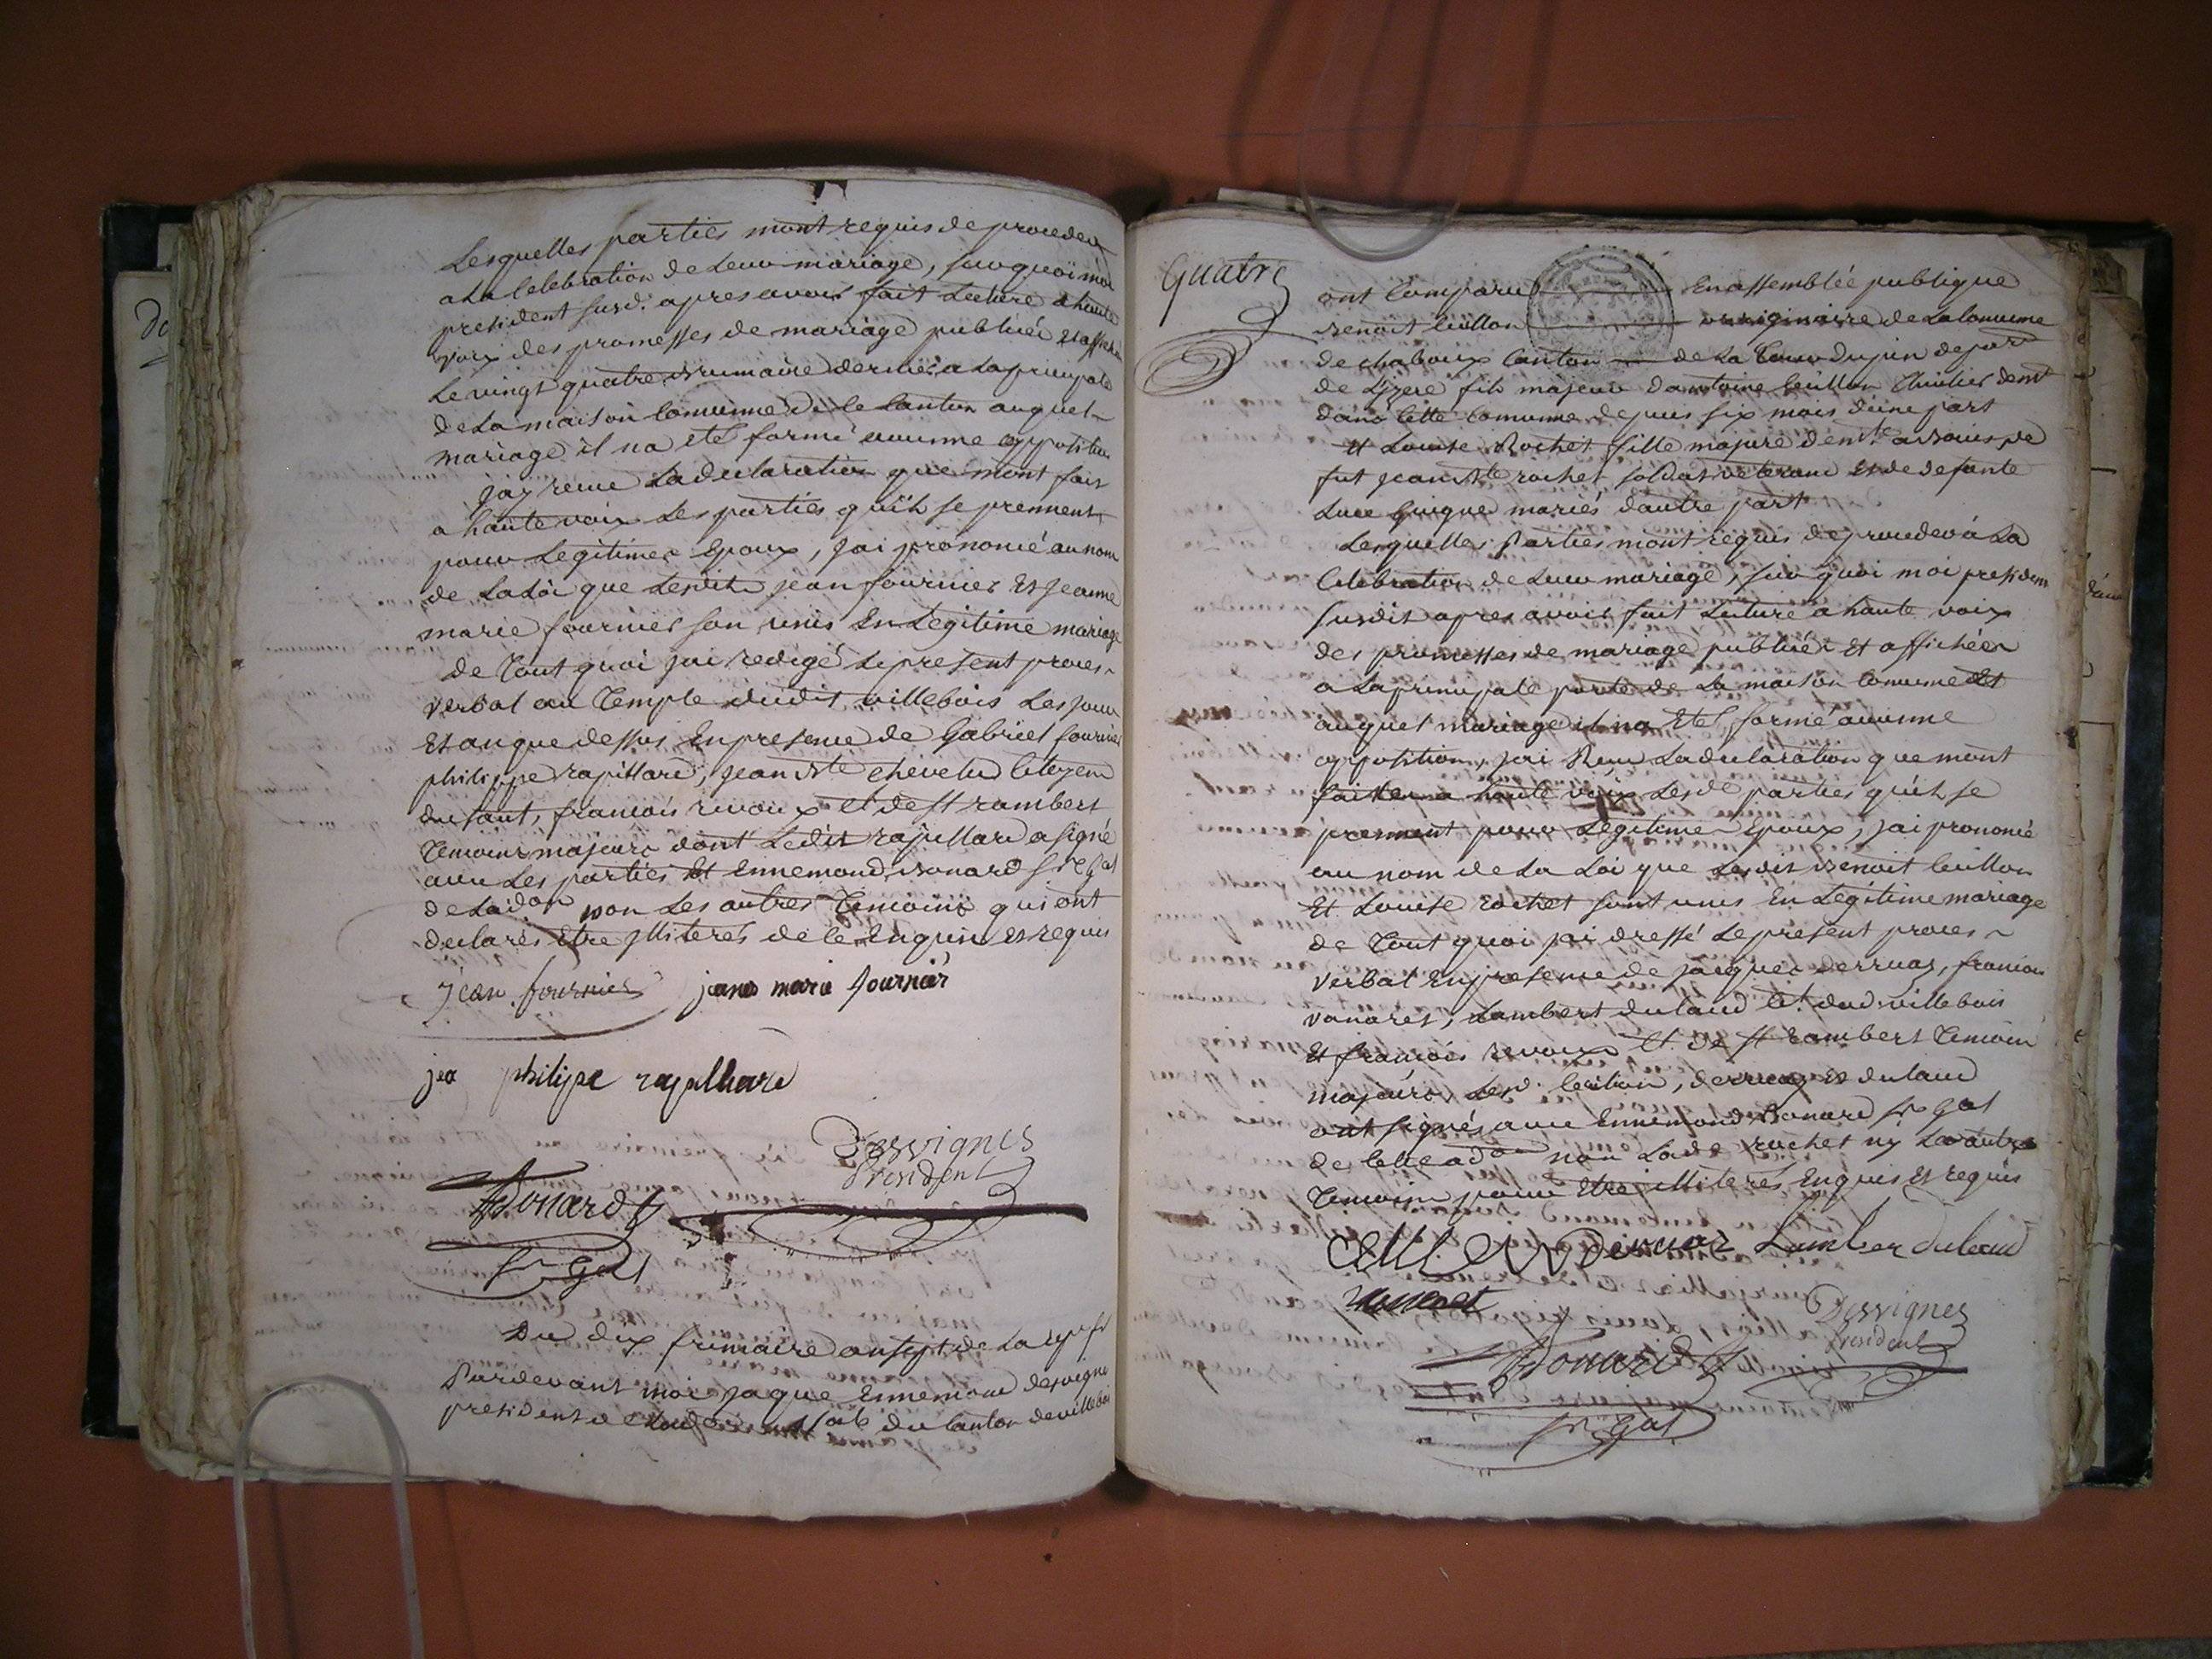 Lesquelles parties mont requis de proceder
a La Celebration de Leur mariage, sur quoi moi
president susd. apres avoir fait Lecture a haute
voix des promesses de mariage publiée et affichée
Le vingt quatre brumaire dernier a La principale
de La maison Commune de ce Canton auquel
mariage il na eté formé aucunne opposition
jay recue La declaration que mont fait
a haute voix Les parties quils se prennent
pour Legitimes Epoux, Jai prononcé au nom
de La Loi que Lesdits jean fournier Et jeanne
marie fournier son unis En Legitime mariage
de Tout quoi jai redigé Le present proces
verbal au Temple dudit villebois Les jour
Et an que dessus En presence de Gabriel fournier
philippe rapillard, jean Bte chevelu Citoyens
du Cant, francois rivoux et de St rambert
Temoins majeurs dont Ledit rapillard a signé
avec Les parties Et Ennemond Bonard sre gal
de Ladon non Les autres Temoins qui ont
declarés Etre illiterés de ce Enquis et requis
jean fournier janes marie fournier
jea philippe rapilliard
Desvignes
President
Bonard
sre Gal
Du dix frimaire an sept de La repe fse
Pardevant moi jaque Ennemond desvigne
president de du Canton de villebois
do
Quatre
ont Comparu En assemblée publique
Benoit Cuillon originaire de La Commune
de chaboux Canton de La Tour dupin depart
de Lizere fils majeur dantoine Cuillon demt
dans Cette Commune depuis six mois dune part
Et Louise Rochet fille majure
fut jean Bte rochet soldat veterand Et de defunte
Luce Guigue mariés dautre part
Lesquelles Parties mont requis de proceder á La
Celebration de Leur mariage, sur quoi moi presiden
susdit apres avoir fait Lecture a haute voix
des promesses de mariage publiées Et affichées
a La principale porte de La maison Commune Et
auquel mariage il na Eté formé aucunne
opposition, jai Recu La declaration que mont
faites a haute voix Lesde parties quils se
prennent pour Legitimes Epoux, jai prononcé
au nom de La Loi que Lesdit Benoit Cuillon
Et Louise rochet sont unis En Legitime mariage
de Tout quoi jai dressé Le présent proces
verbal En presence de jacques derruaz, francois
vanaret, Lambert dulaud Ct. dud. villebois
Et francois rivoux Ct. de St rambert Temoin
majeurs Lesd. Cuilon, derruaz et dulaud
ont signés avec Ennemond Bonard sre gal
de Cette adon non Lade rochet ny Les autres
Temoins pour Etre illiterés Enquis Et requis
Derruaz Lamber dulaud
Desvignes
President
Bonard
sre Gal